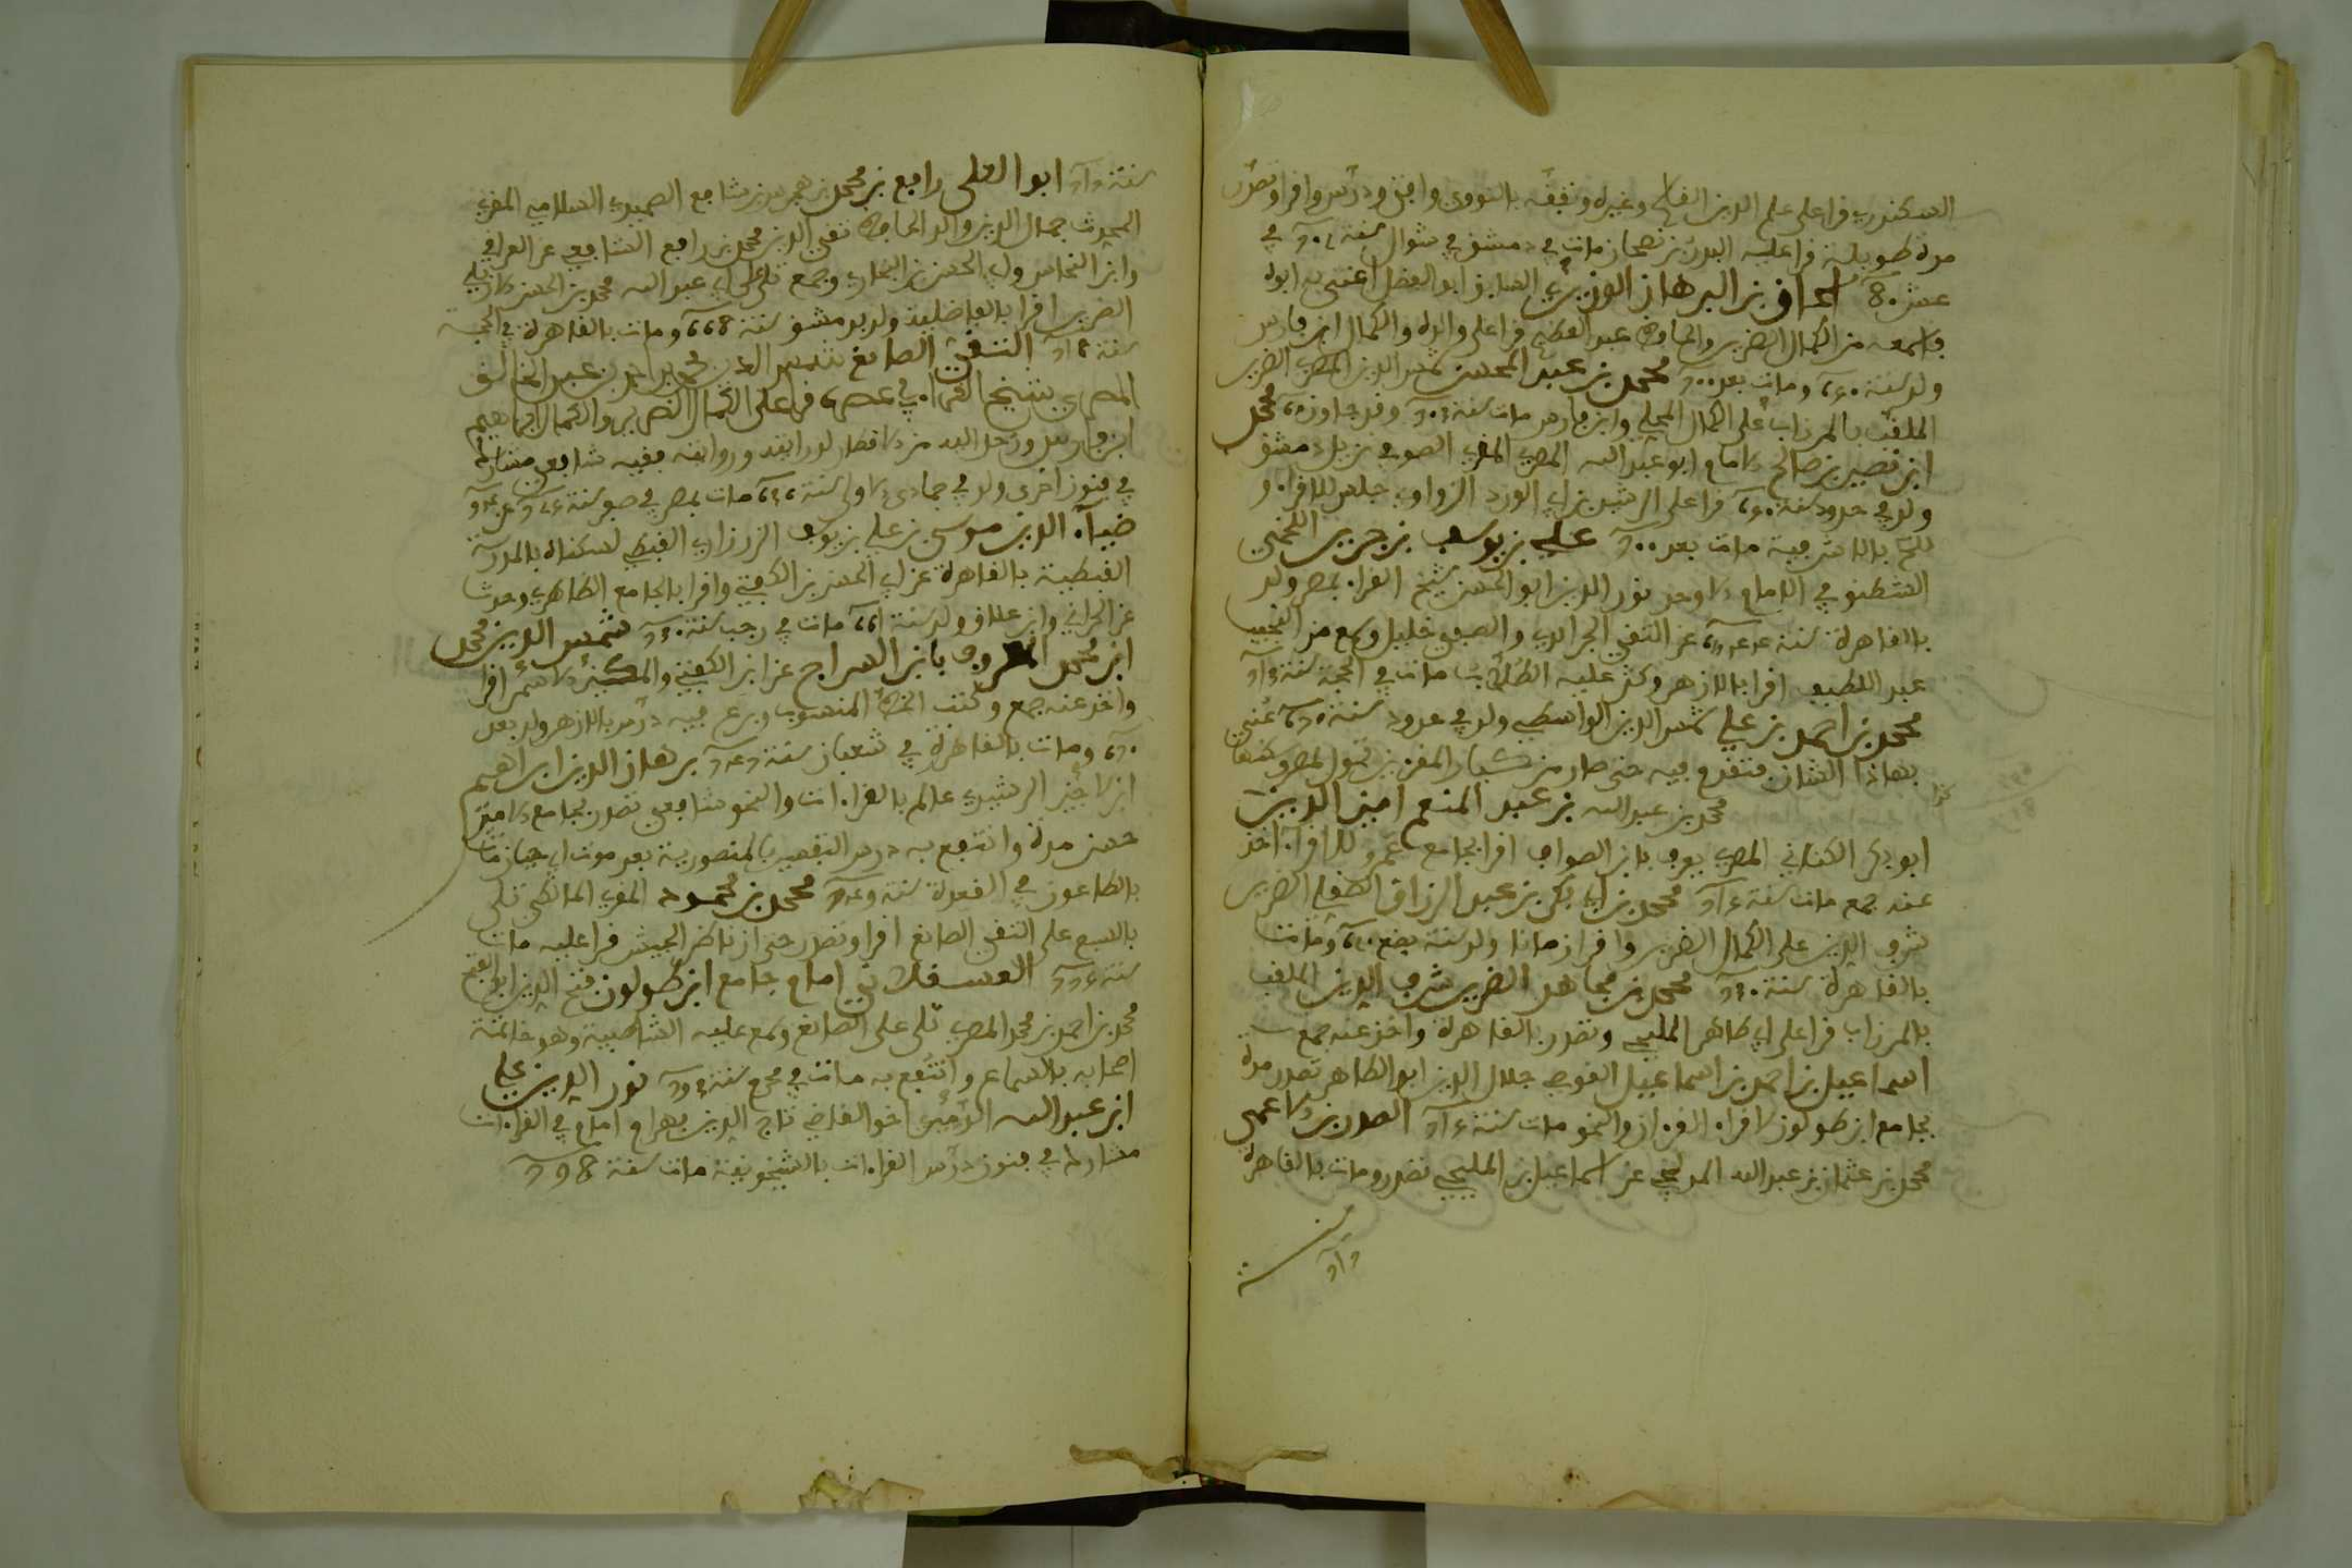 السكندري قرا على علم الدين القاسم وغيره وتفقه بالنووي وافتى ودرس واقرا وتصدر
مدة طويلة قرا عليه البدر بن بصحان مات في دمشق في شوال سنة في
عشر 80 اسحاق بن البرهان الوزيري السابق ابو الفضل اعتنى به ابوه
واسمعه من الكمال الضرير والحافظ عبد العظيم قرا على والده والكمال ابن فارس
ولد سنة ومات بعد محمد بن عبد المحسن شمس الدين المصري الضرير
الملقب بالمرزاب على الكمال المحلي وابن فارس مات سنة وقد جاوز محمد
ابن نصير بن صالح الامام ابو عبد الله المصري المقري الصوفي نزيل دمشق
ولد في حدود سنة قرا على الرشيد بن ابي الدر الزواوي جلس للاقراء و
بالاشرفية مات بعد علي بن يوسف بن حريز اللخمي
الشطنوفي الامام الاوحد نور الدين ابو الحسن شيخ القراء بمصر ولد
بالقاهرة سنة عن التقي الجرائدي والصفي خليل وسمع من النجيب
عبد اللطيف اقرا بالازهر وكثر عليه الطلاب مات في الحجة سنة
محمد بن احمد بن علي شمس الدين الواسطي ولد في حدود سنة عني
بهاذا الشان فتقدم فيه حتى صار من كبار المقريين تحول لمصر وسكنها
محمد بن عبد الله بن عبد المنعم امين الدين
ابو بكر الكناني المصري يعرف بابن الصواف اقرا بجامع عمرو للاقراء اخذ
عنه جمع مات سنة محمد بن ابي بكر بن عبد الرزاق الضرير
شرف الدين على الكمال الضرير واقرا زمانا ولد سنة بضع ومات
بالقاهرة سنة محمد بن مجاهد الضرير شرف الدين الملقب
بالمرزاب قرا على ابي طاهر المليجي وتصدر بالقاهرة واخذ عنه جمع
اسماعيل بن احمد بن اسماعيل القوصي جلال الدين ابو الطاهر تصدر مدة
بجامع ابن طولون لاقراء القرءان والنحو مات سنة الصدر بن الاعمى
محمد بن عثمان بن عبد الله المدلجي عن اسماعيل بن المليجي تصدر ومات بالقاهرة
سنة
سنة ابو العلى رافع بن محمد بن هجرس بن شافع الصميدي السلامي المقري
المحدث جمال الدين والد الحافظ تقي الدين محمد بن رافع الشافعي عن العراقي
وابن النحاس وابي الحسن بن البخاري وجمع تلى على ابي عبد الله محمد بن الحسن الاربلي
الضرير اقرا بالفاضلية ولد بدمشق سنة 668 ومات بالقاهرة في الحجة
سنة التقي الصائغ شمس الدين محمد بن احمد بن عبد الخالق
المصري شيخ القراء في عصره قرا على الكمال الضرير والكمال ابراهيم
ابن فارس ورحل اليه من الاقطار لدرايته وروايته فقيه شافعي مشارك
في فنون اخرى ولد في جمادى الاولى سنة مات بمصر في صفر سنة
ضياء الدين موسى بن علي بن يوسف الزرزاري القبطي لسكناه بالمدرسة
القبطية بالقاهرة عن ابي الحسن بن الكفتي واقرا بالجامع الظاهري وحدث
عن الحراني وابن علاق ولد سنة مات في رجب سنة شمس الدين محمد
ابن محمد المعروف بابن السراج عن ابن الكفتي والمكين الاسمر اقرا
واخذ عنه جمع وكتب الخط المنسوب وبرع فيه درس بالازهر ولد بعد
ومات بالقاهرة في شعبان سنة برهان الدين ابراهيم
ابن لاجين الرشيدي عالم بالقراءات والنحو شافعي تصدر بجامع الامير
حسن مدة وانتفع به درس التفسير بالمنصورية بعد موت ابي حيان مات
بالطاعون في القعدة سنة محمد بن مسعود المقري المالكي تلى
بالسبع على التقي الصائغ اقرا وتصدر حتى ان ناظر الجيش قرا عليه مات
سنة العسقلاني امام جامع ابن طولون فتح الدين ابو الفتح
محمد بن احمد بن محمد المصري تلى على الصائغ وسمع عليه الشاطبية وهو خاتمة
اصحابه بالسماع وانتفع به مات في محرم سنة نور الدين علي
ابن عبد الله الدميري اخو القاضي تاج الدين بهرام امام في القراءات
مشارك في فنون درس القراءات بالشيخونية مات سنة 798